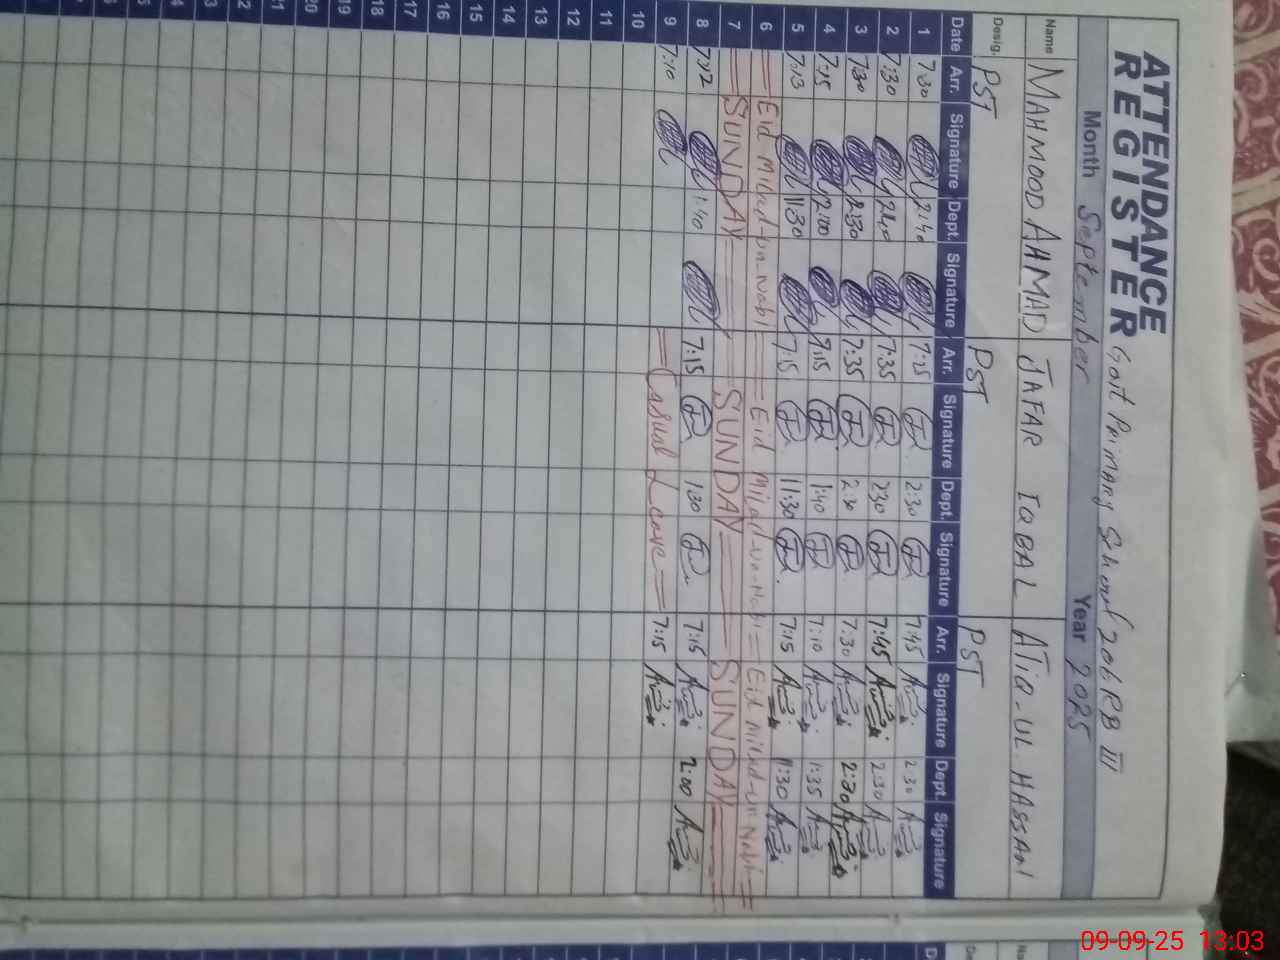 ATTENDANCE
REGISTER Govt Primary School 206 RB III
Month September Year 2025
Name MAHMOOD AHMAD JAFAR IQBAL ATIQ-UL HASSAN
Desig. PST PST PST
Date Arr. Signature Dept. Signature Arr. Signature Dept. Signature Arr. Signature Dept. Signature
1 7:30 2:40 7:25 2:30 7:45 2:30
2 7:30 2:40 7:35 2:30 7:45 2:30
3 7:30 2:30 7:35 2:30 7:30 2:30
4 7:15 2:00 7:15 1:40 7:10 1:35
5 7:13 11:30 7:15 11:30 7:15 11:30
6 Eid Milad-un-Nabi Eid Milad-un-Nabi Eid Milad-un Nabi
7 SUNDAY SUNDAY SUNDAY
8 7:12 1:40 7:15 1:30 7:15 2:00
9 7:10 Casual Leave 7:15
10
11
12
13
14
15
16
17
18
19
20
21
22
09-09-25 13:03